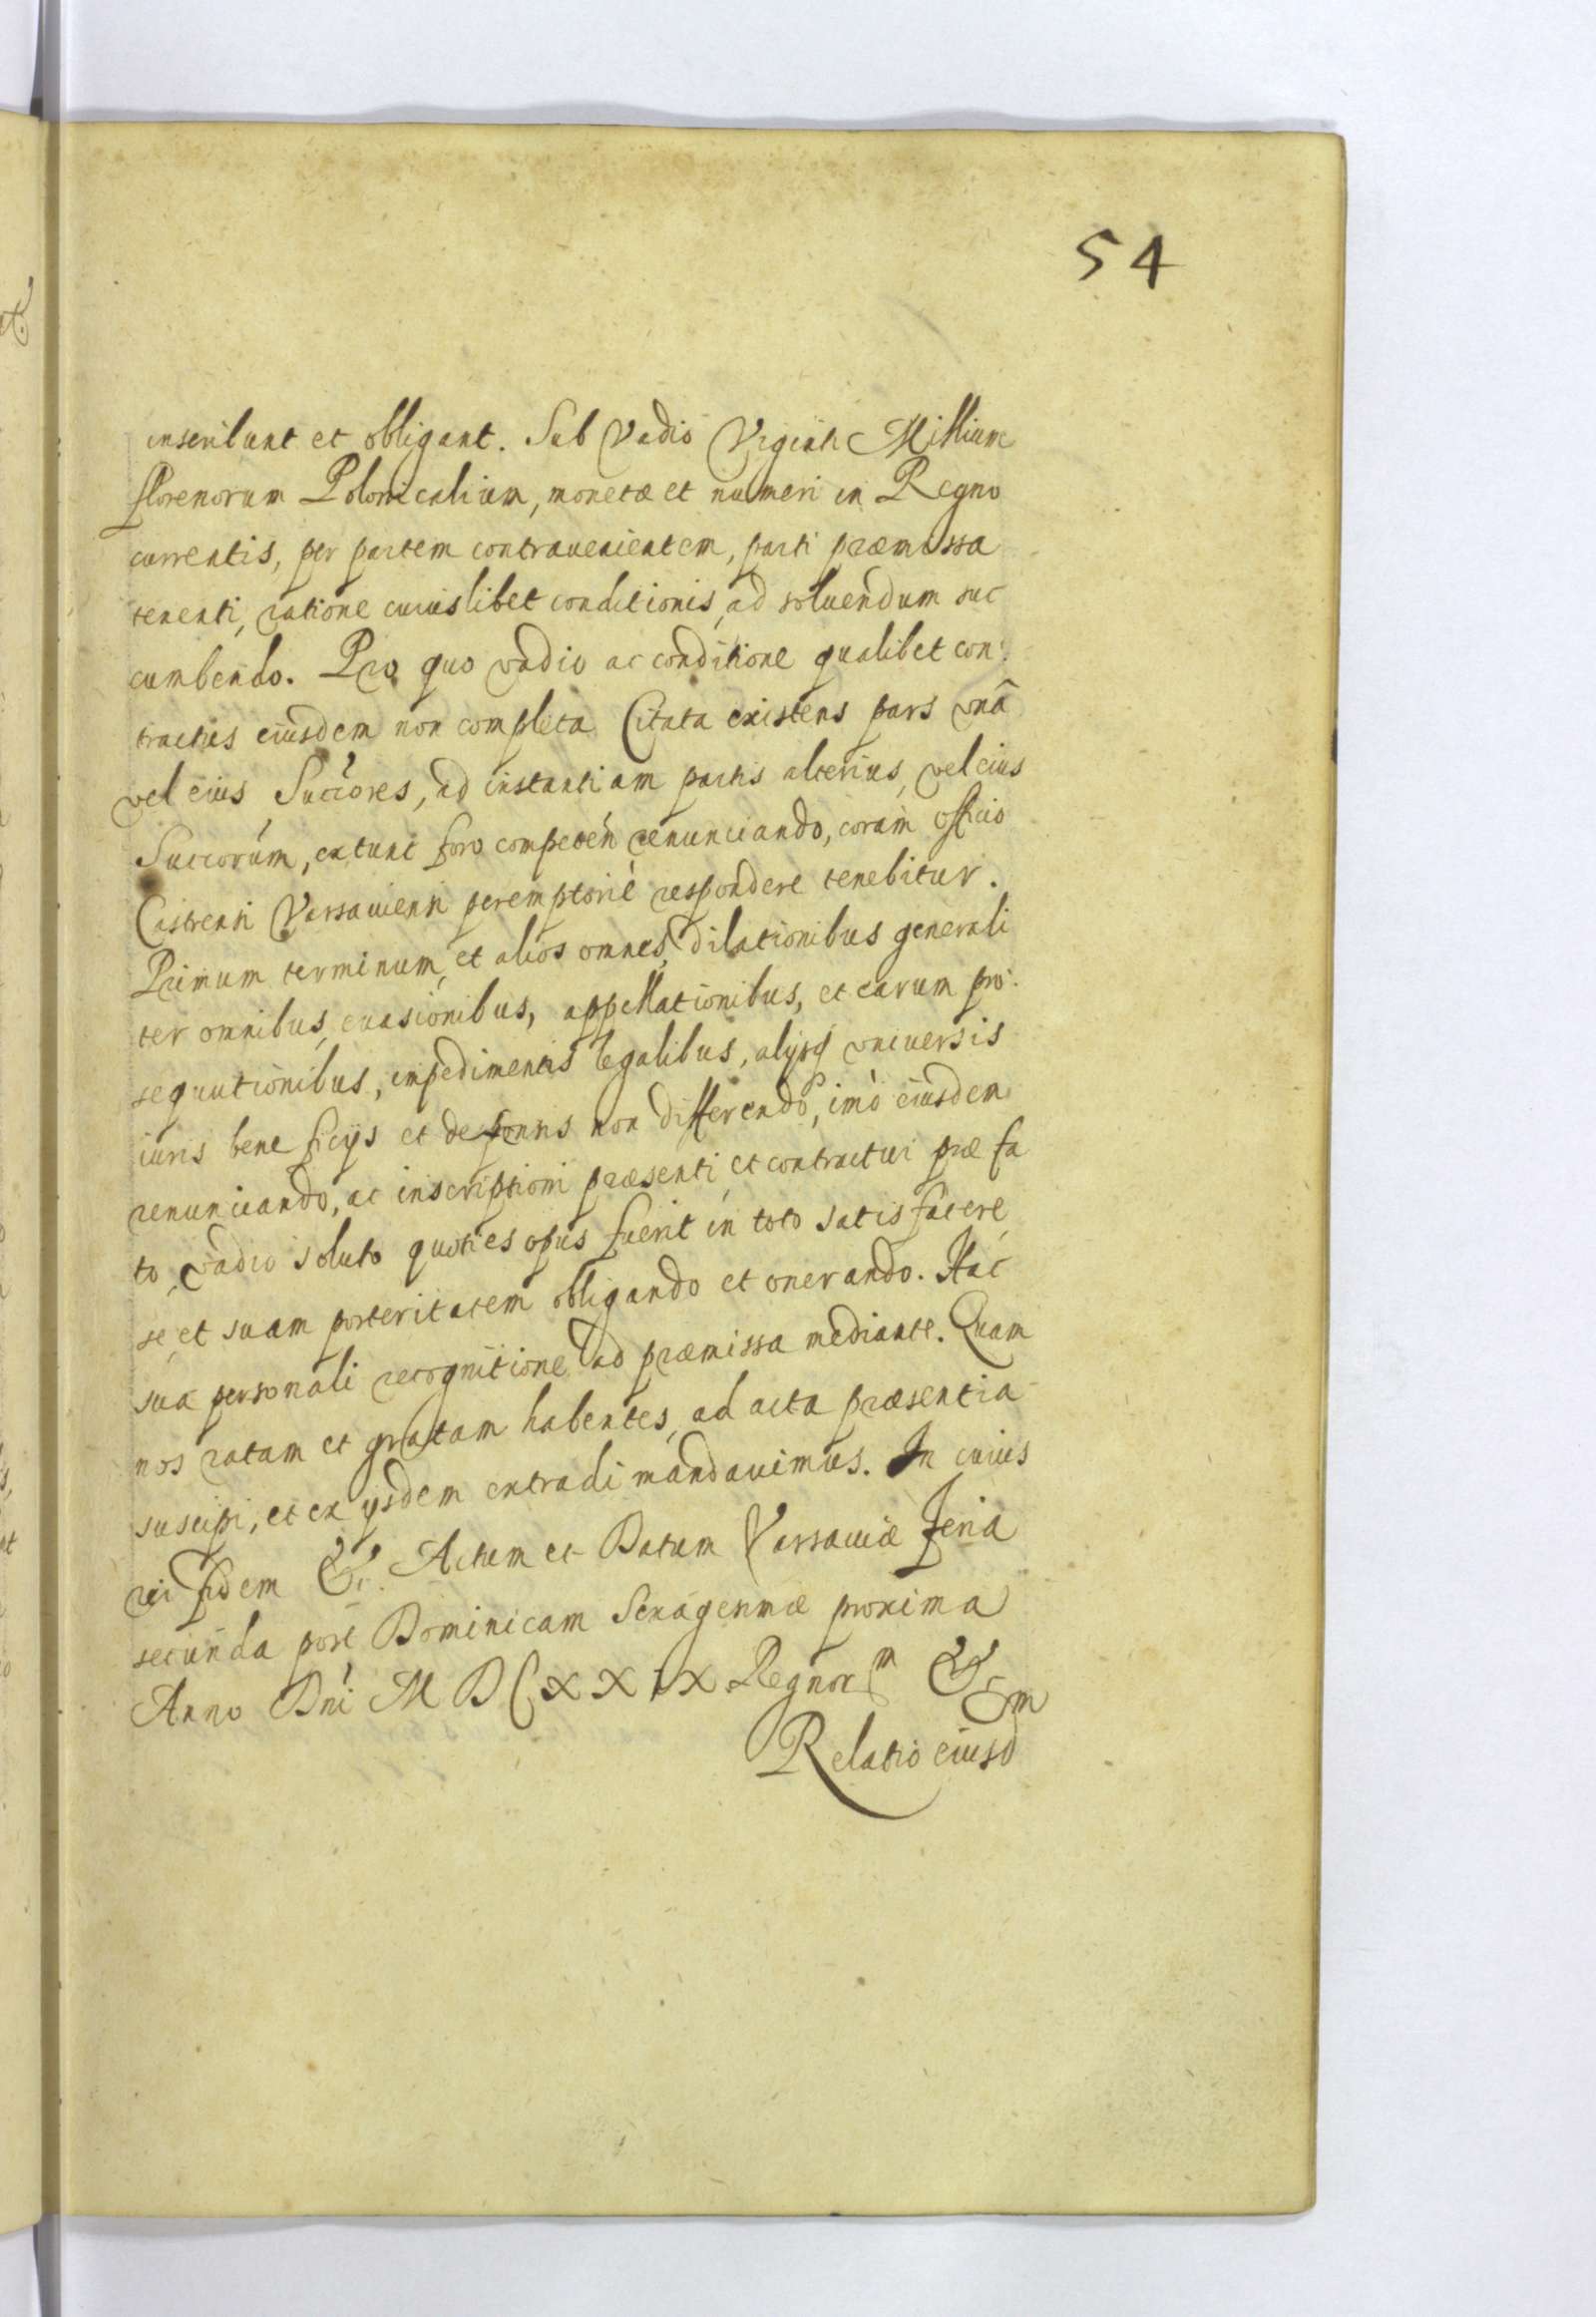 54
inscribunt et obligant. Sub Vadio Viginti Millium
florenorum Polonicalium, monetæ et numeri in Regno
currentis, per partem contravenientem, parti præmissa
tenenti, ratione cuiuslibet conditionis, ad soluendum suc
cumbendo. Pro quo vadio ac conditione qualibet con:
tractus eiusdem non completa Citata existens pars unâ
vel eius Succores, ad instantiam partis alterius, vel eius
Succorúm, extunc foro competeń renunciando, coram officio
Castrensi Varsauiensi peremptoriè respondere tenebitur.
Primum terminum, et alios omnes, dilationibus generali
ter omnibus, euasionibus, appellationibus, et earum pro:
sequutionibus, impedimentis legalibus, alijsq vniuersis
iuris beneficijs et defensis non differendo, imò eiusdem
renunciando, ac inscriptioni præsenti, et contractui præfa
to, vadio soluto quoties opus fuerit in toto satisfacere,
se, et suam posteritatem obligando et onerando. Hac
sua personali recognitione ad præmissa mediante. Quam
nos ratam et gratam habentes, ad acta præsentia
suscipi, et ex ijsdem extradi mandauimus. In cuius
rei fidem &c. Actum et Datum Varsauiæ feria
secunda post Dominicam Sexagesimæ proxima
Anno Dni M D C x x i x Regnor m &c
Relatio eiusd m